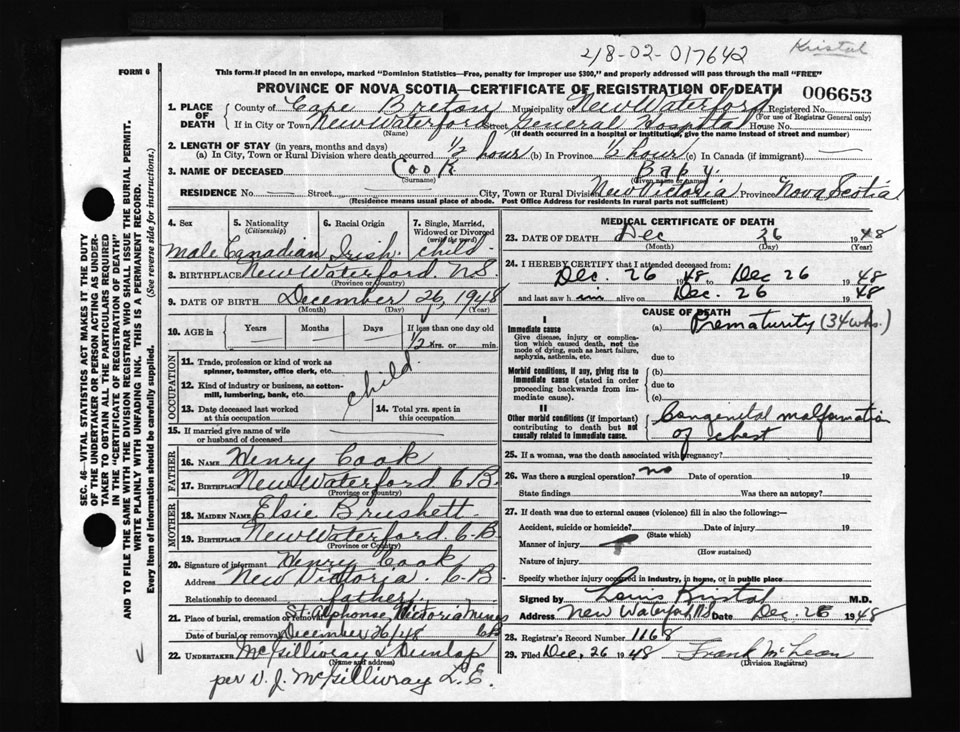 218-02-017642
Kristal
FORM 6
This form if placed in an envelope, marked "Dominion Statistics—Free, penalty for improper use $300," and properly addressed will pass through the mail "FREE"
PROVINCE OF NOVA SCOTIA—CERTIFICATE OF REGISTRATION OF DEATH
006653
1. PLACE OF DEATH
County of Cape Breton Municipality of New Waterford Registered No.
(For use of Registrar General only)
If in City or Town New Waterford Street General Hospital House No.
(Name) (If death occurred in a hospital or institution, give the name instead of street and number)
2. LENGTH OF STAY (in years, months and days)
(a) In City, Town or Rural Division where death occurred 1/2 hour (b) In Province 1/2 hour (c) In Canada (if immigrant) —
3. NAME OF DECEASED Cook Baby.
(Surname) (Given name or names)
RESIDENCE No. — Street City, Town or Rural Division New Victoria Province Nova Scotia
(Residence means usual place of abode. Post Office Address for residents in rural parts not sufficient)
4. Sex
male
5. Nationality
(Citizenship)
Canadian
6. Racial Origin
Irish.
7. Single, Married, Widowed or Divorced
(write the word)
child
8. BIRTHPLACE New Waterford. N.S.
(Province or Country)
9. DATE OF BIRTH December 26, 1948
(Month) (Day) (Year)
10. AGE in
Years Months Days If less than one day old
1/2 hrs. or min.
OCCUPATION
11. Trade, profession or kind of work as spinner, teamster, office clerk, etc.
12. Kind of industry or business, as cotton-mill, lumbering, bank, etc.
child
13. Date deceased last worked at this occupation
14. Total yrs. spent in this occupation
15. If married give name of wife or husband of deceased —
FATHER
16. NAME Henry Cook
17. BIRTHPLACE New Waterford C.B.
(Province or Country)
MOTHER
18. MAIDEN NAME Elsie Brushett
19. BIRTHPLACE New Waterford. C.B
(Province or Country)
20. Signature of informant Henry Cook
Address New Victoria. C.B
Relationship to deceased father.
21. Place of burial, cremation or removal St. Alphonse, Victoria Mines
C.B.
Date of burial or removal December 26/48
22. UNDERTAKER McGillivray & Dunlop
(Name and address)
per V. J. McGillivray L.E.
MEDICAL CERTIFICATE OF DEATH
23. DATE OF DEATH Dec 26 1948
(Month) (Day) (Year)
24. I HEREBY CERTIFY that I attended deceased from:
Dec. 26 1948 to Dec 26 1948
and last saw him alive on Dec. 26 1948
CAUSE OF DEATH
I
Immediate cause
Give disease, injury or complication which caused death, not the mode of dying, such as heart failure, asphyxia, asthenia, etc.
(a) Prematurity (34 wks.)
due to
Morbid conditions, if any, giving rise to immediate cause (stated in order proceeding backwards from immediate cause).
(b)
due to
(c)
II
Other morbid conditions (if important) contributing to death but not causally related to immediate cause.
Congenital malformation
of chest
25. If a woman, was the death associated with pregnancy?
26. Was there a surgical operation? no Date of operation 19
State findings Was there an autopsy?
27. If death was due to external causes (violence) fill in also the following:—
Accident, suicide or homicide? Date of injury 19
(State which)
Manner of injury
(How sustained)
Nature of injury
Specify whether injury occurred in industry, in home, or in public place
Signed by Louis Kristal M.D.
Address New Waterford, N.S Date Dec. 26 1948
28. Registrar's Record Number 1168
29. Filed Dec, 26 1948 Frank McLean
(Division Registrar)
SEC. 46—VITAL STATISTICS ACT MAKES IT THE DUTY
OF THE UNDERTAKER OR PERSON ACTING AS UNDERTAKER TO OBTAIN ALL THE PARTICULARS REQUIRED
IN THE "CERTIFICATE OF REGISTRATION OF DEATH"
AND TO FILE THE SAME WITH THE DIVISION REGISTRAR WHO SHALL ISSUE THE BURIAL PERMIT.
WRITE PLAINLY WITH UNFADING INK. THIS IS A PERMANENT RECORD.
Every item of information should be carefully supplied. (See reverse side for instructions.)